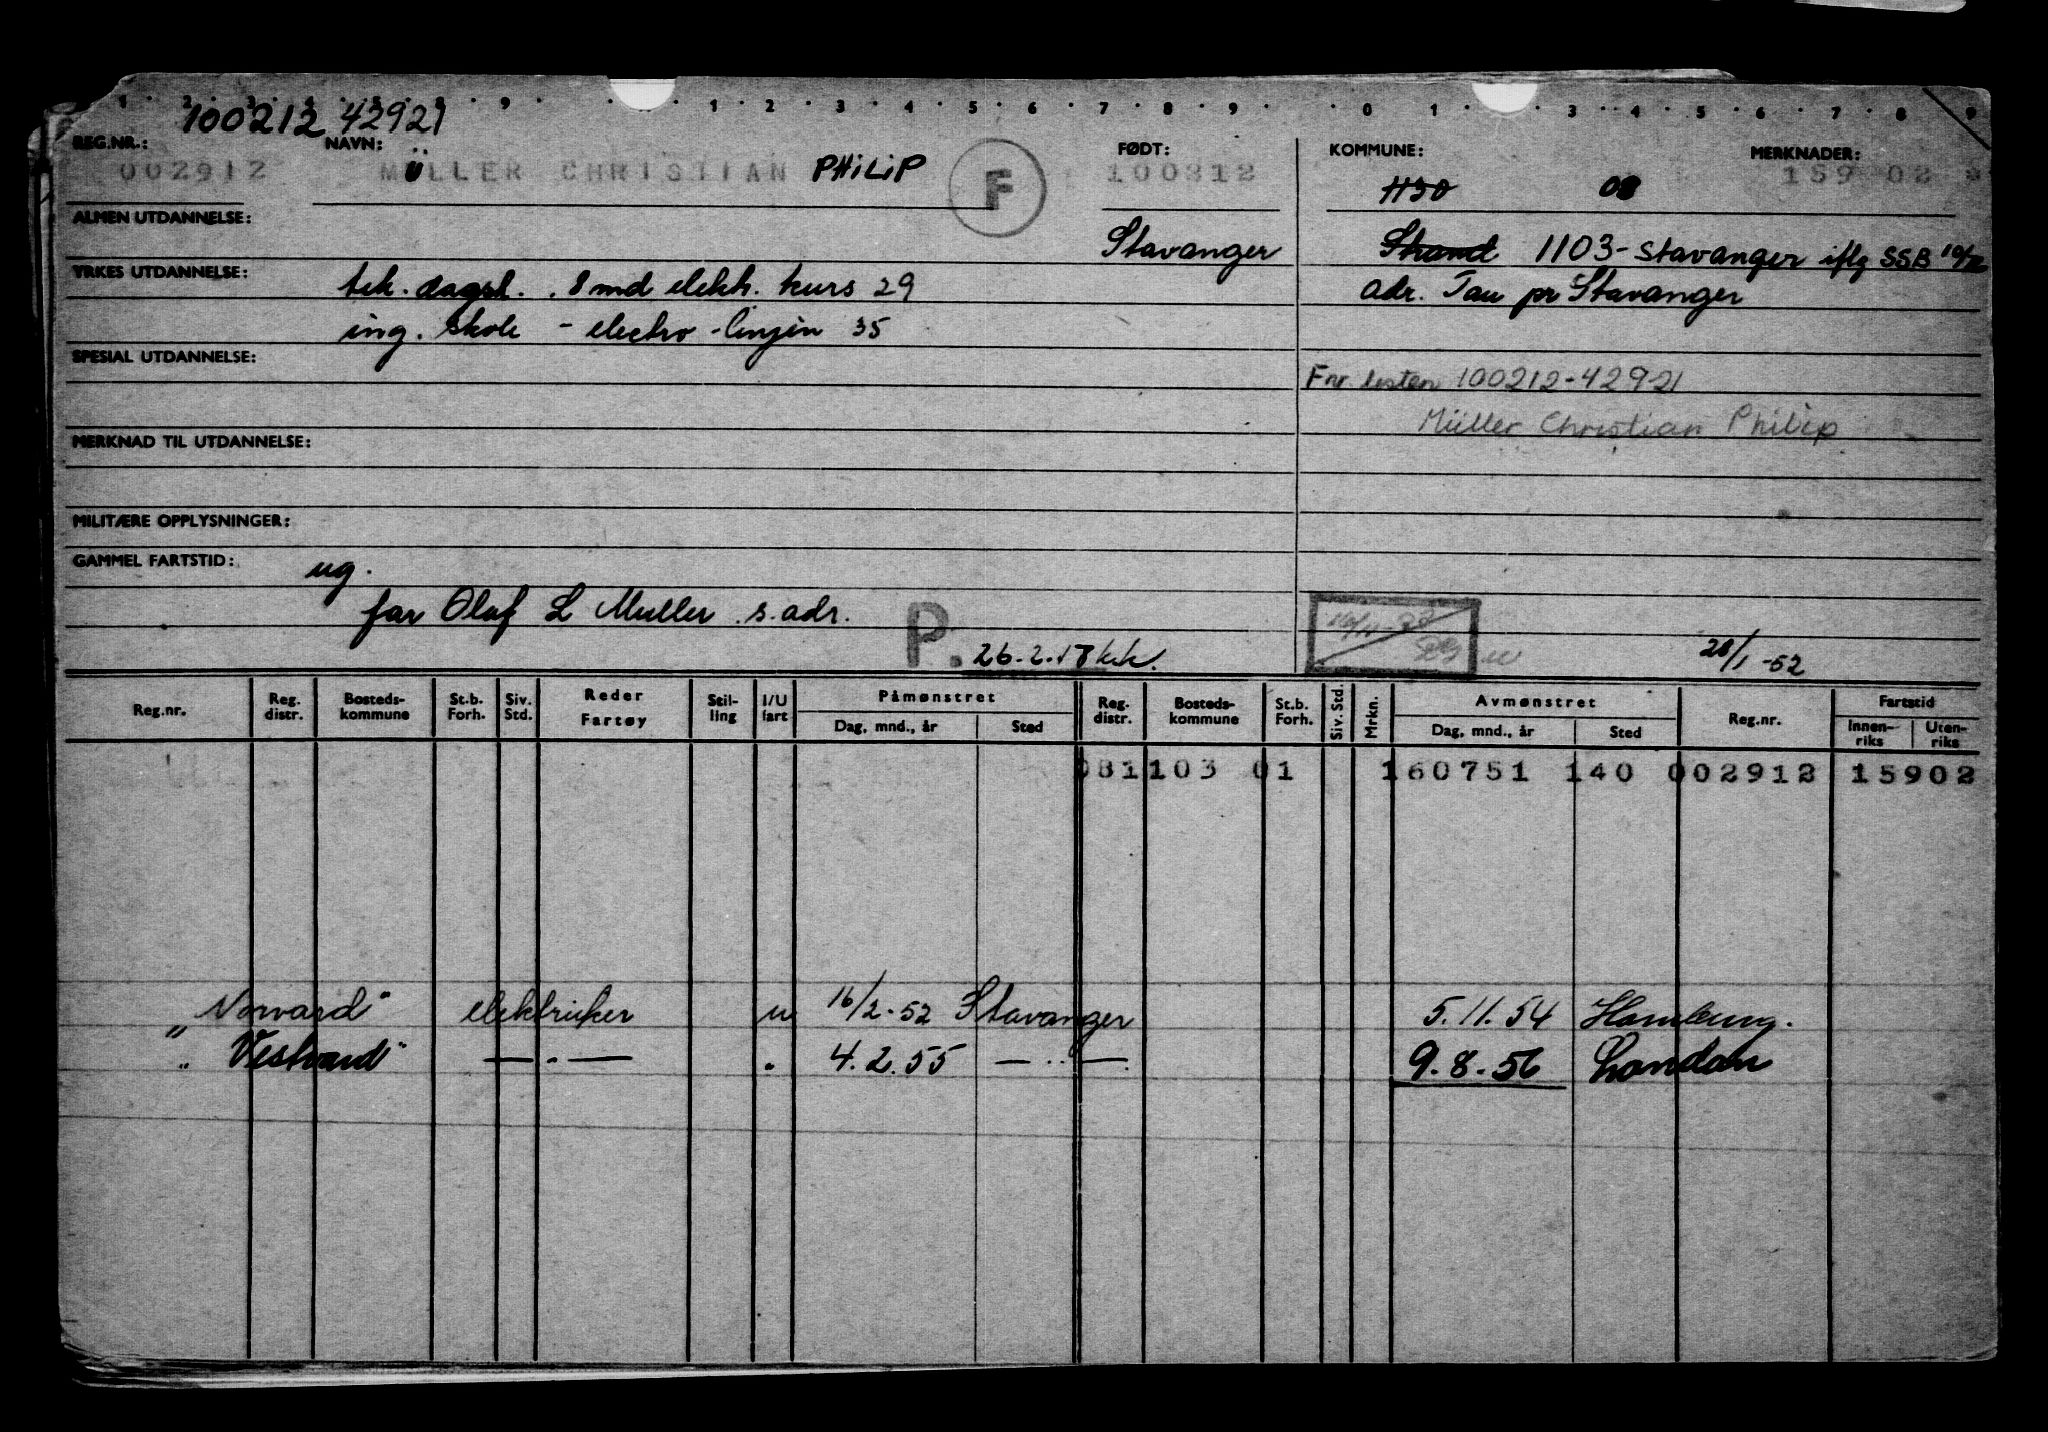 1 2 3 9 1 2 3 4 5 6 7 8 9 0 1 3 4 5 6 7 8 9
100212 42921
REG.NR.: NAVN: FØDT: KOMMUNE: MERKNADER:
002912 MÜLLER CHRISTIAN PHILIP F 100212 1130 08 159 02
ALMEN UTDANNELSE:
Stavanger Strand 1103-Stavanger iflg SSB
YRKES UTDANNELSE: tek. dagsk. . 8 md elekk. kurs 29 adr. Tau pr Stavanger
ing. skole - electro-linjen 35
SPESIAL UTDANNELSE:
Fnr listen 100212-42921
Müller Christian Philip
MERKNAD TIL UTDANNELSE:
MILITÆRE OPPLYSNINGER:
GAMMEL FARTSTID: ug.
far Olaf L Muller s. adr. P.
28/1-52
Reg.nr. Reg. distr. Bosteds-kommune St.b. Forh. Siv. Std. Reder Fartøy Stil-ling I/U fart Påmønstret Dag, mnd., år Sted Reg. distr. Bosteds-kommune St.b. Forh. Siv. Std. Mrkn. Avmønstret Dag, mnd., år Sted Reg.nr. Fartstid Innen-riks Uten-riks
081103 01 160751 140 002912 15902
"Norvard" elektriker u 16/2-52 Stavanger 5.11.54 Hamburg.
" Vestvard" — . — . 4.2.55 — .. — 9.8.56 London